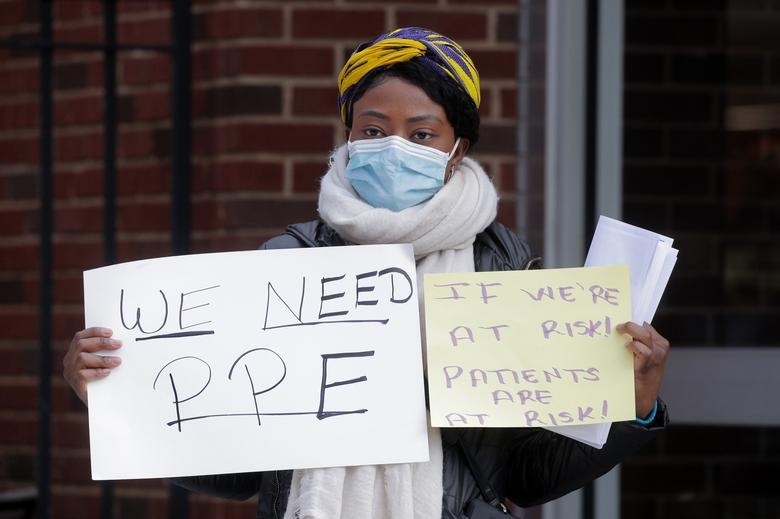 WE NEED
PPE
IF WE'RE
AT RISK!
PATIENTS
ARE
AT RISK!